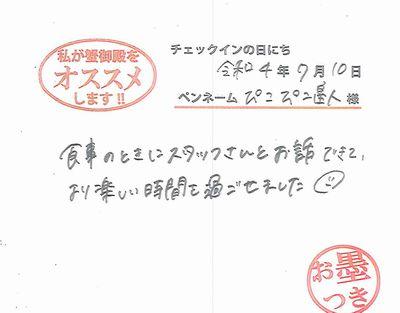 私が蟹御殿を
オススメ
します!!
チェックインの日にち
令和4年7月10日
ペンネーム ぴこぴこ星人 様
食事のときにスタッフさんとお話できて、
より楽しい時間を過ごせました
お墨
つき